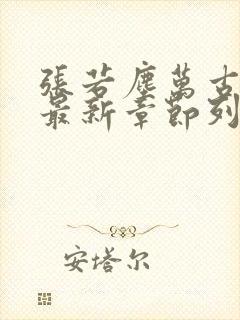 張若塵萬古
最新章節列
安塔尔